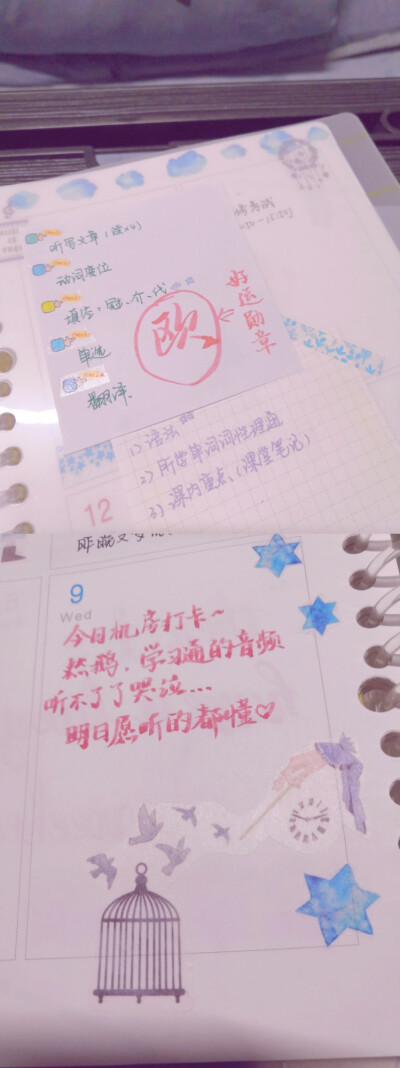 听写文章(短x4)
动词变位
填泫：冠、介、代
单选
翻译
欧
好运勋章
1)语法
2)所学单词词性理函
3)课内重点(课堂笔记)
12
9
Wed
今日机房打卡~
然鹅，学习通的音频
听不了了哭泣...
明日愿听的都懂♡